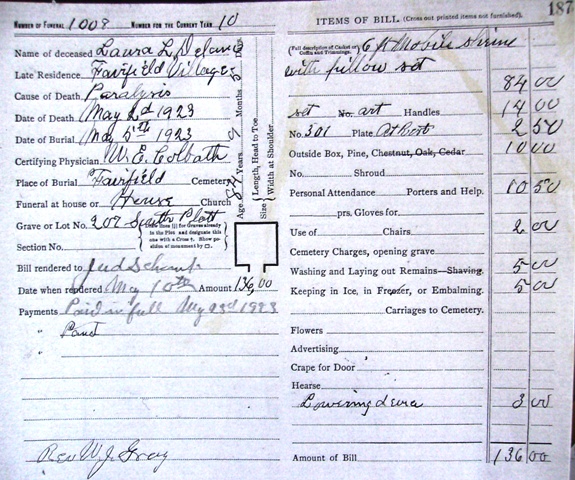 NUMBER OF FUNERAL 1008 NUMBER FOR THE CURRENT YEAR 10
Name of deceased Laura L.
Late Residence Fairfield Village
Cause of Death Paralysis
Date of Death May 2d 1923
Date of Burial May 5th 1923
Certifying Physician W. E. Colbath
Place of Burial Fairfield Cemetery
Funeral at house or House Church
Grave or Lot No. 207 Smith Plott
Section No.
Draw lines for Graves already in the Plot and designate this one with a Cross †. Show position of monument by
Bill rendered to Jud
Date when rendered May 10th Amount 136,00
Payments Paid in full May 23d 1923
" Paid
"
Rev W. J. Gray
Age Years 9 Months Days
Length, Head to Toe
Size Width at Shoulder
187
ITEMS OF BILL. (Cross out printed items not furnished).
(Full description of Casket or Coffin and Trimmings.) 6 ft Mobile Shrine
with pillow set 84 00
set No. art Handles 14 00
No. 301 Plate At Rest 2 50
Outside Box, Pine, Chestnut, Oak, Cedar 10 00
No. Shroud
Personal Attendance Porters and Help. 10 50
prs. Gloves for
Use of Chairs 2 00
Cemetery Charges, opening grave
Washing and Laying out Remains—Shaving. 5 00
Keeping in Ice, in Freezer, or Embalming. 5 00
Carriages to Cemetery.
Flowers
Advertising
Crape for Door
Hearse
Lowering 3 00
Amount of Bill 136 00